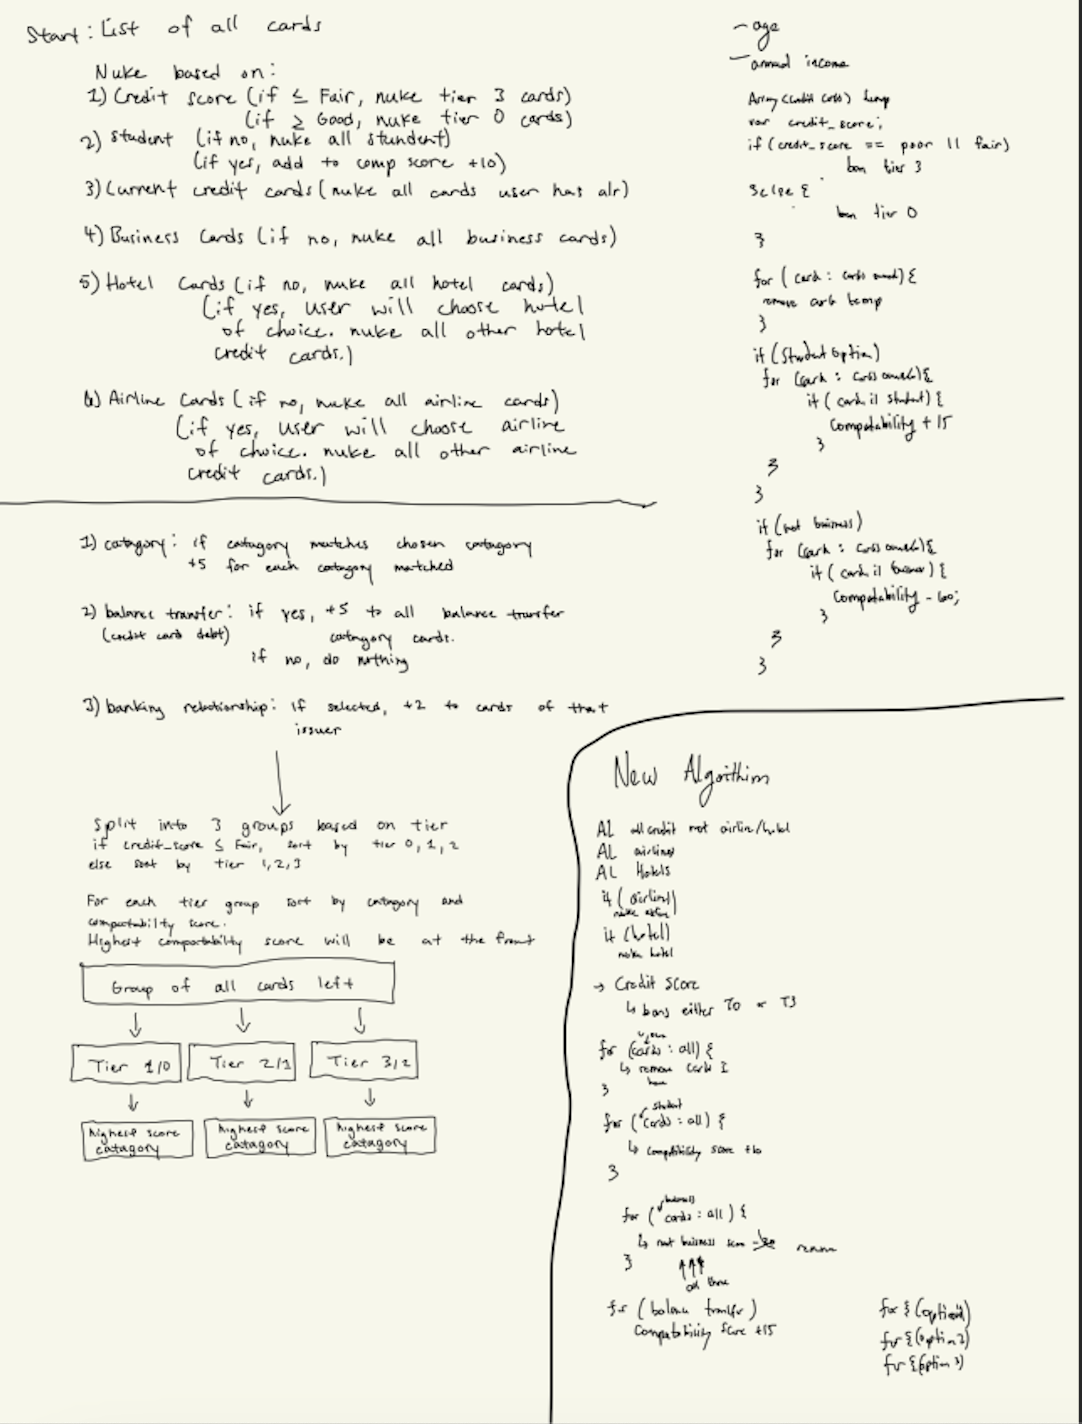 Start: List of all cards
Nuke based on:
1) Credit score (if ≤ Fair, nuke tier 3 cards)
(if ≥ Good, nuke tier 0 cards)
2) student (if no, nuke all stundent)
(if yes, add to comp score +10)
3) Current credit cards (nuke all cards user has alr)
4) Business Cards (if no, nuke all business cards)
5) Hotel Cards (if no, nuke all hotel cards)
(if yes, user will choose hotel
of choice. nuke all other hotel
credit cards.)
6) Airline Cards (if no, nuke all airline cards)
(if yes, user will choose airline
of choice. nuke all other airline
credit cards.)
1) catagory: if catagory matches chosen catagory
+5 for each catagory matched
2) balance transfer: if yes, +5 to all balance transfer
(credit card debt) catagory cards.
if no, do nothing
3) banking relationship: if selected, +2 to cards of that
issuer
Split into 3 groups based on tier
if credit_score ≤ Fair, sort by tier 0, 1, 2
else sort by tier 1, 2, 3
For each tier group sort by catagory and
compatability score.
Highest compatability score will be at the front
Group of all cards left
Tier 1/0 Tier 2/1 Tier 3/2
highest score highest score highest score
catagory catagory catagory
- age
- annual income
Array<credit cards> temp
var credit_score;
if (credit_score == poor || fair)
ban tier 3
} else {
ban tier 0
}
for (card : cards owned) {
remove card temp
}
if (Student option)
for (card : cards owned) {
if (card is student) {
Compatability + 15
}
}
}
if (not business)
for (card : cards owned) {
if (card is business) {
Compatability - 60;
}
}
}
New Algorithim
AL all credit not airline/hotel
AL airlines
AL Hotels
if (airline)
nuke
if (hotel)
nuke hotel
→ Credit Score
↳ bans either T0 or T3
for (cards : all) {
↳ remove cards I
have
}
student
for (cards : all) {
↳ compatibility score +10
}
business
for (cards : all) {
↳ not business score remove
}
all three
for (balance transfer)
Compatability score +15
for {(option 1)
for {(option 2)
for {(option 3)